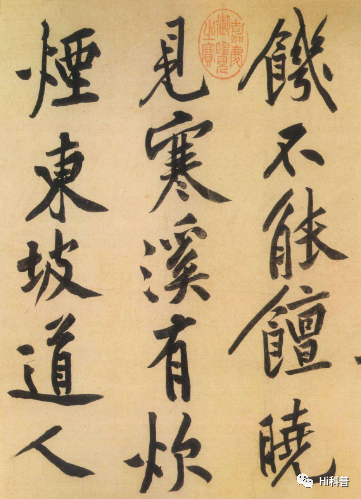 饑不能饘曉
見寒溪有炊
煙東坡道人
嘉慶
御覽
之寶
Hi科普